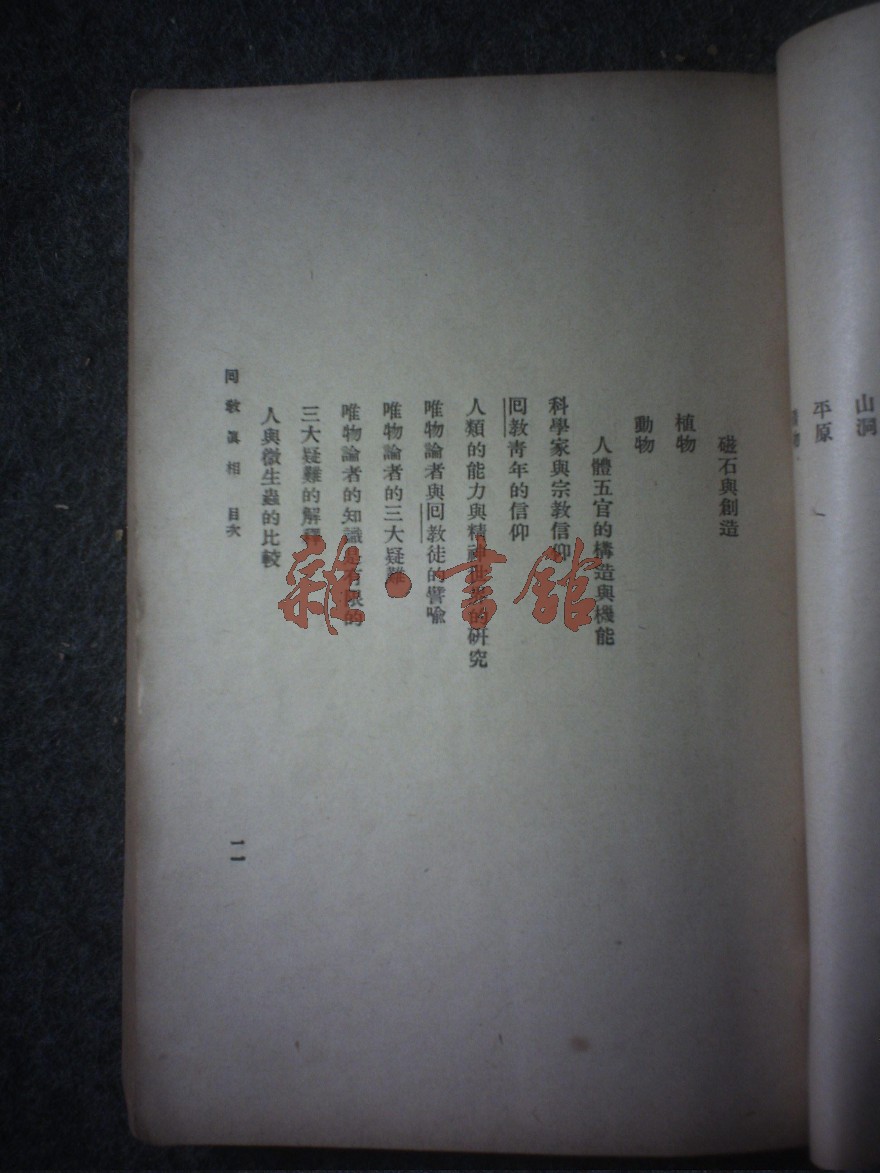 山洞
平原
磁石與創造
植物
動物
人體五官的構造與機能
科學家與宗教信仰
回教靑年的信仰
人類的能力與精神世界的研究
唯物論者與回教徒的譬喩
唯物論者的三大疑難
唯物論者的知識是有限的
三大疑難的解釋
人與微生蟲的比較
回教眞相 目次
二
雜·書館